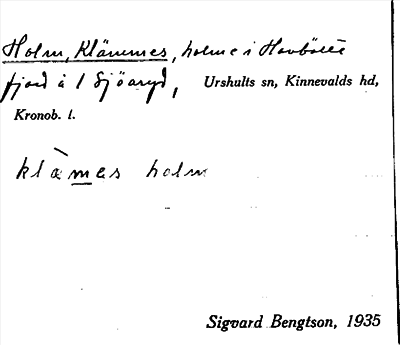 Holm, Klämmes, holme i Havbälte
fjord å 1 Sjöaryd, Urshults sn, Kinnevalds hd,
Kronob. l.
klàmes holm
Sigvard Bengtson, 1935